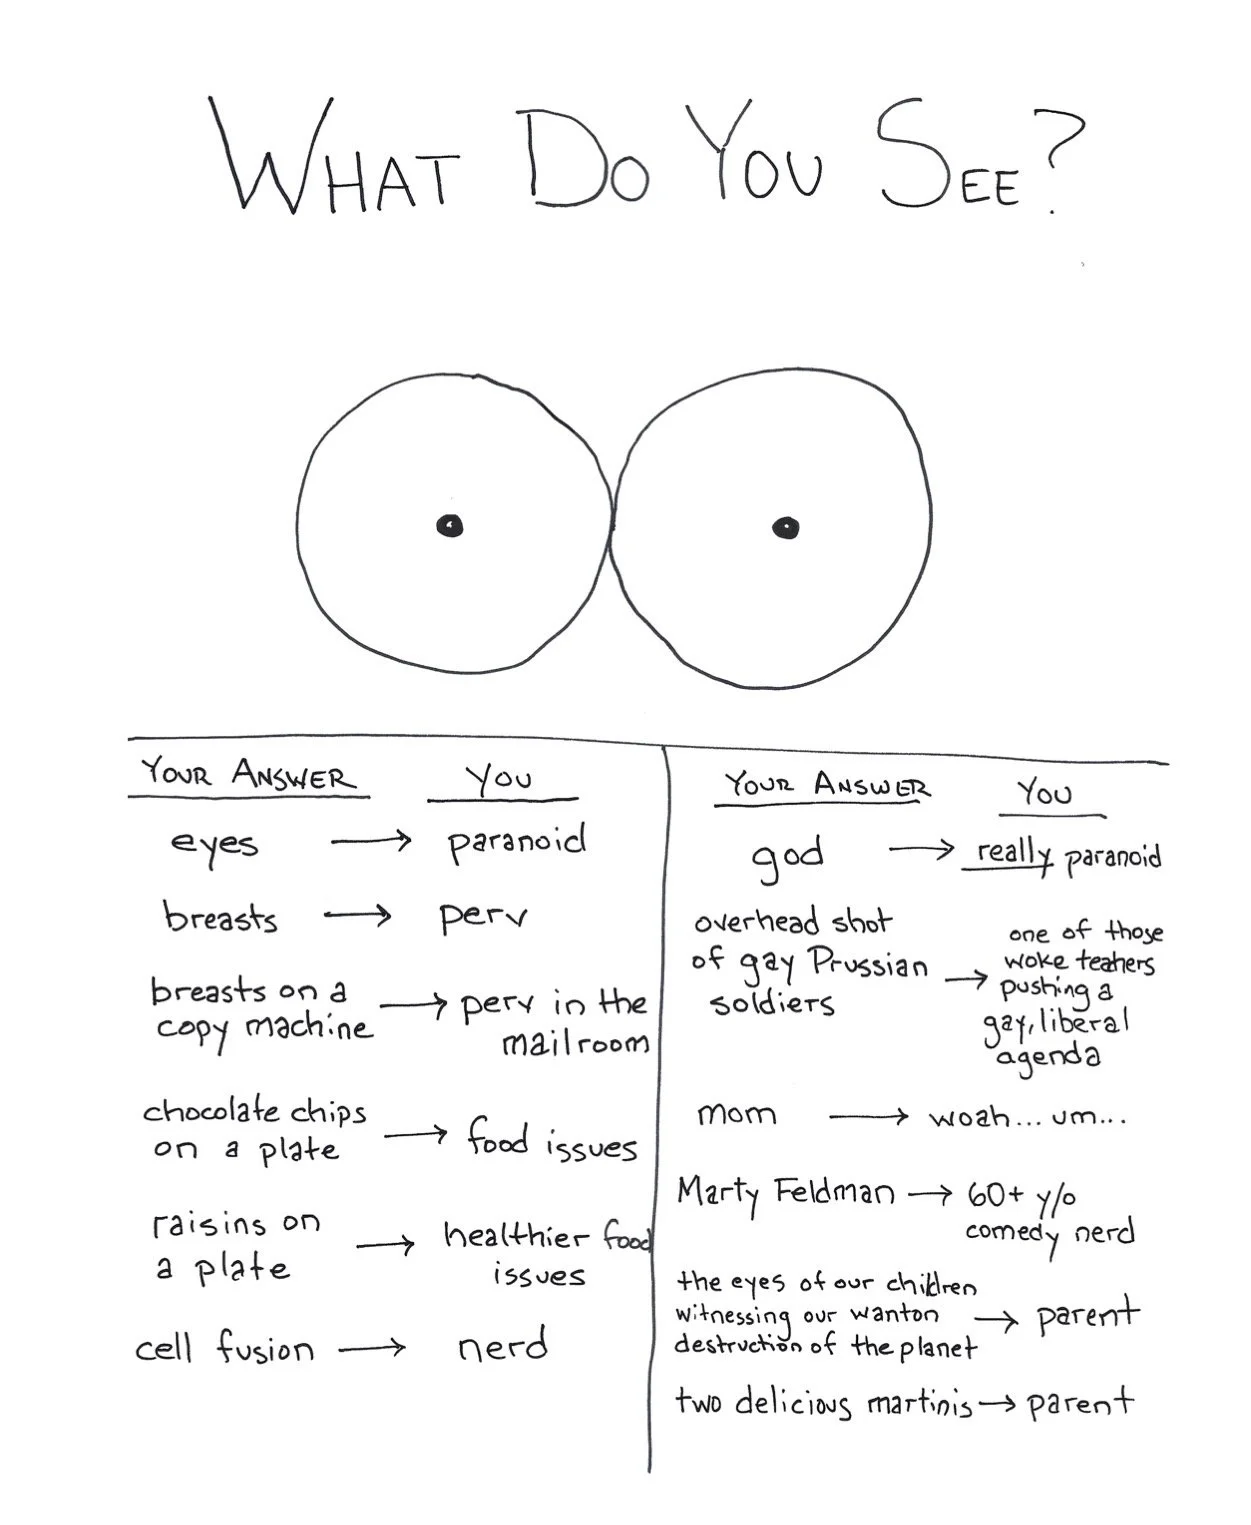 WHAT DO YOU SEE?
YOUR ANSWER YOU
eyes → paranoid
breasts → perv
breasts on a
copy machine → perv in the
mailroom
chocolate chips
on a plate → food issues
raisins on
a plate → healthier food
issues
cell fusion → nerd
YOUR ANSWER YOU
god → really paranoid
overhead shot
of gay Prussian
soldiers → one of those
woke teahers
pushing a
gay, liberal
agenda
mom → woah... um...
Marty Feldman → 60+ y/o
comedy nerd
the eyes of our children
witnessing our wanton
destruction of the planet → parent
two delicious martinis → parent